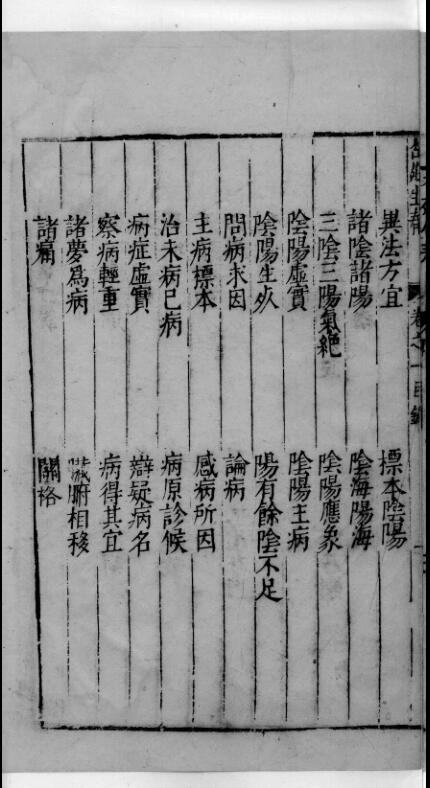 卷之一目錄
異法方宜 標本陰陽
諸陰諸陽 陰海陽海
三陰三陽氣絶 陰陽應象
陰陽虛實 陰陽主病
陰陽生死 陽有餘陰不足
問病求因 論病
主病標本 感病所因
治未病已病 病原診候
病症虛實 辯疑病名
察病輕重 病得其宜
諸夢爲病 臟腑相移
諸痛 關格